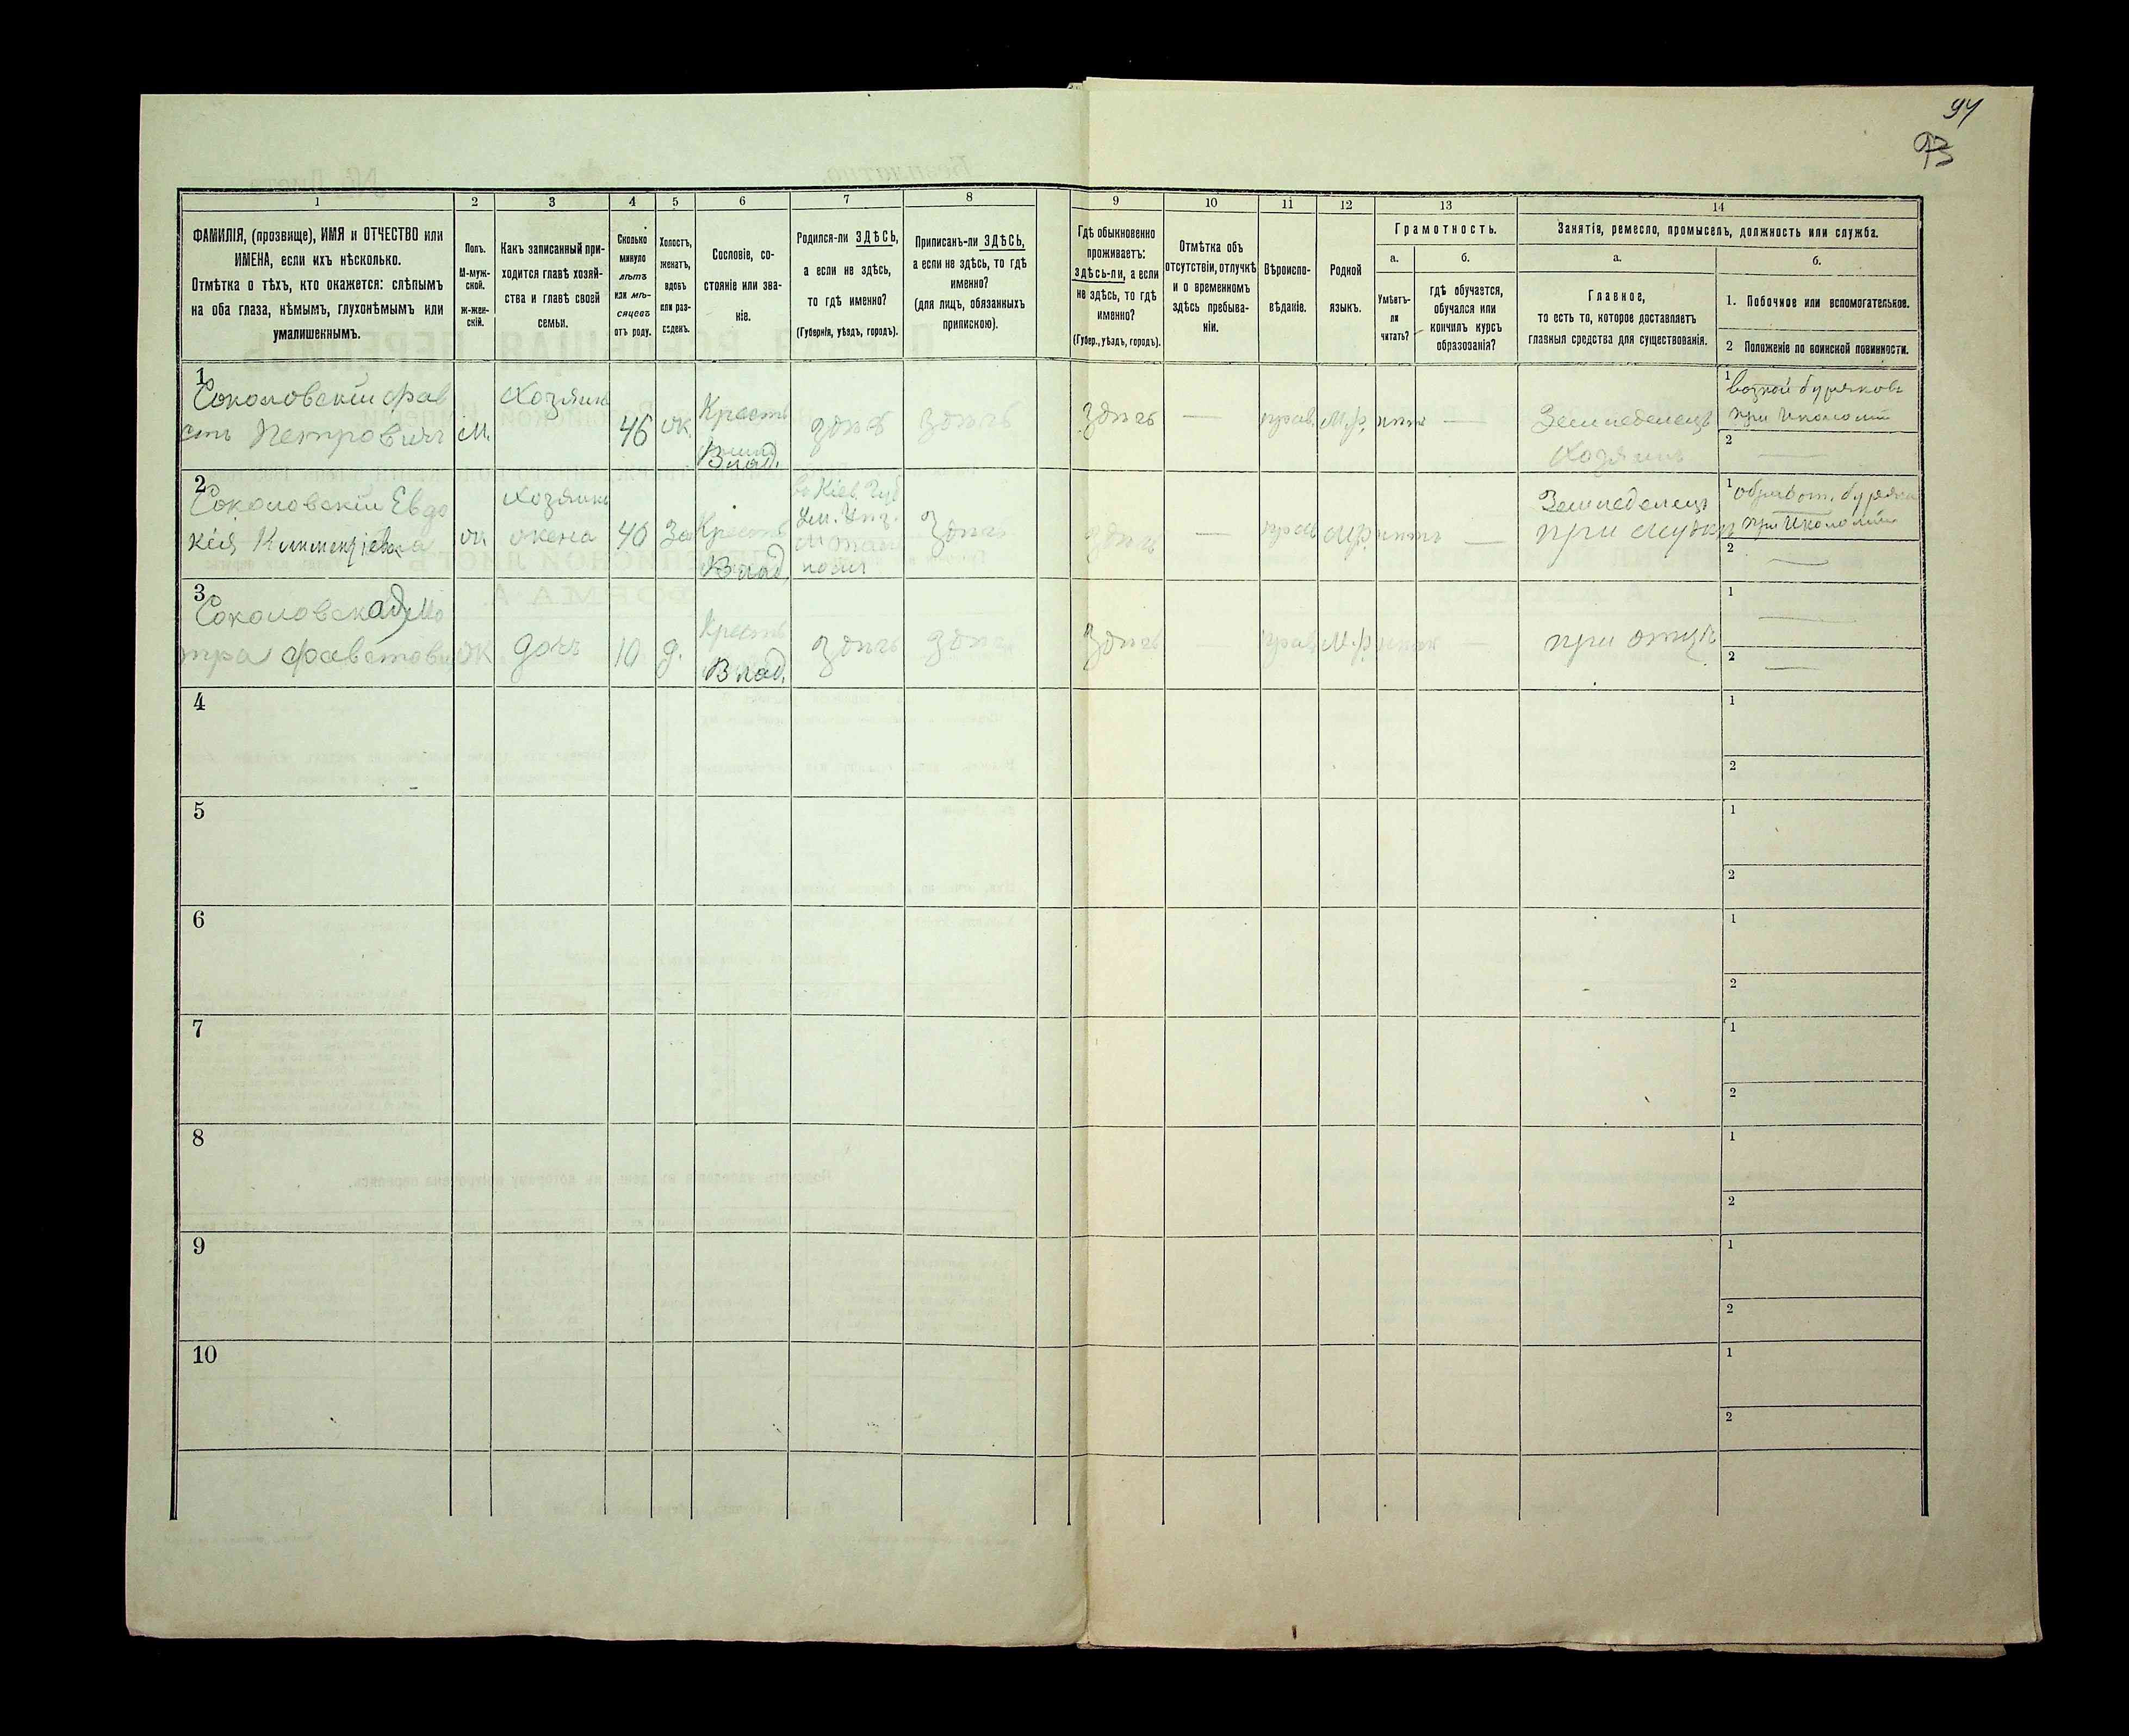 94
93
1
2
3
4
5
6
7
8
9
10
11
12
13
14
ФАМИЛІЯ, (прозвище), ИМЯ и ОТЧЕСТВО или
ИМЕНА, если ихъ нѣсколько.
Отмѣтка о тѣхъ, кто окажется: слѣпымъ
на оба глаза, нѣмымъ, глухонѣмымъ или
умалишеннымъ.
Полъ.
М-муж-
ской.
ж-жен-
скій.
Какъ записанный при-
ходится главѣ хозяй-
ства и главѣ своей
семьи.
Сколько
минуло
лѣтъ
или мѣ-
сяцевъ
отъ роду.
Холостъ,
женатъ,
вдовъ
или раз-
веденъ.
Сословіе, со-
стояніе или зва-
ніе.
Родился-ли ЗДѢСЬ,
а если не здѣсь,
то гдѣ именно?
(Губернія, уѣздъ, городъ).
Приписанъ-ли ЗДѢСЬ,
а если не здѣсь, то гдѣ
именно?
(для лицъ, обязанныхъ
припискою).
Гдѣ обыкновенно
проживаетъ:
здѣсь-ли, а если
не здѣсь, то гдѣ
именно?
(Губер., уѣздъ, городъ).
Отмѣтка объ
отсутствіи, отлучкѣ
и о временномъ
здѣсь пребыва-
ніи.
Вѣроиспо-
вѣданіе.
Родной
языкъ.
Грамотность.
а.
Умѣетъ-
ли
читать?
б.
гдѣ обучается,
обучался или
кончилъ курсъ
образованія?
Занятія, ремесло, промыселъ, должность или служба.
а.
Главное,
то есть то, которое доставляетъ
главныя средства для существованія.
б.
1. Побочное или вспомогательное.
2 Положеніе по воинской повинности.
1
Соколовскій Фав
стъ Петровичъ
М.
Хозяинъ
46
ж.
Крестъ
Влад.
здѣсь
здѣсь
здѣсь
—
прав.
М.р.
нѣтъ
—
Земледелецъ
Хозяинъ
1
возкой буряковъ
при Икономіи
2
—
2
Соколовскій Евдо
кія Климентіевна
ж.
Хозяина
жена
40
За
Крестъ
Влад.
въ Кіев. Губ
здѣсь
здѣсь
—
прав
М.р.
нѣтъ
—
Земледелецъ
при мужу
1
обработ. буряка
при Икономіи
2
—
3
Соколовская Мо
тра Фавстовна
Ж
дочь
10
д.
Крестъ
Влад.
здѣсь
здѣсь
здѣсь
—
прав
М.р.
—
при отцу
1
—
2
—
4
1
2
5
1
2
6
1
2
7
1
2
8
1
2
9
1
2
10
1
2